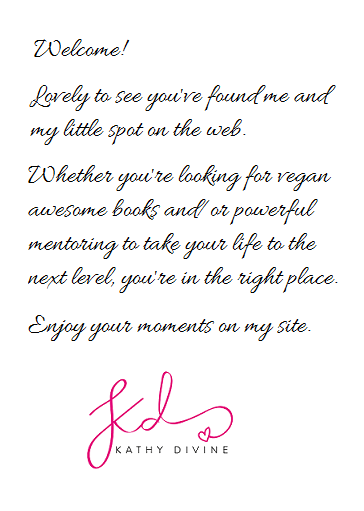 Welcome!
Lovely to see you've found me and
my little spot on the web.
Whether you're looking for vegan
awesome books and/ or powerful
mentoring to take your life to the
next level, you're in the right place.
Enjoy your moments on my site.
Kd
KATHY DIVINE